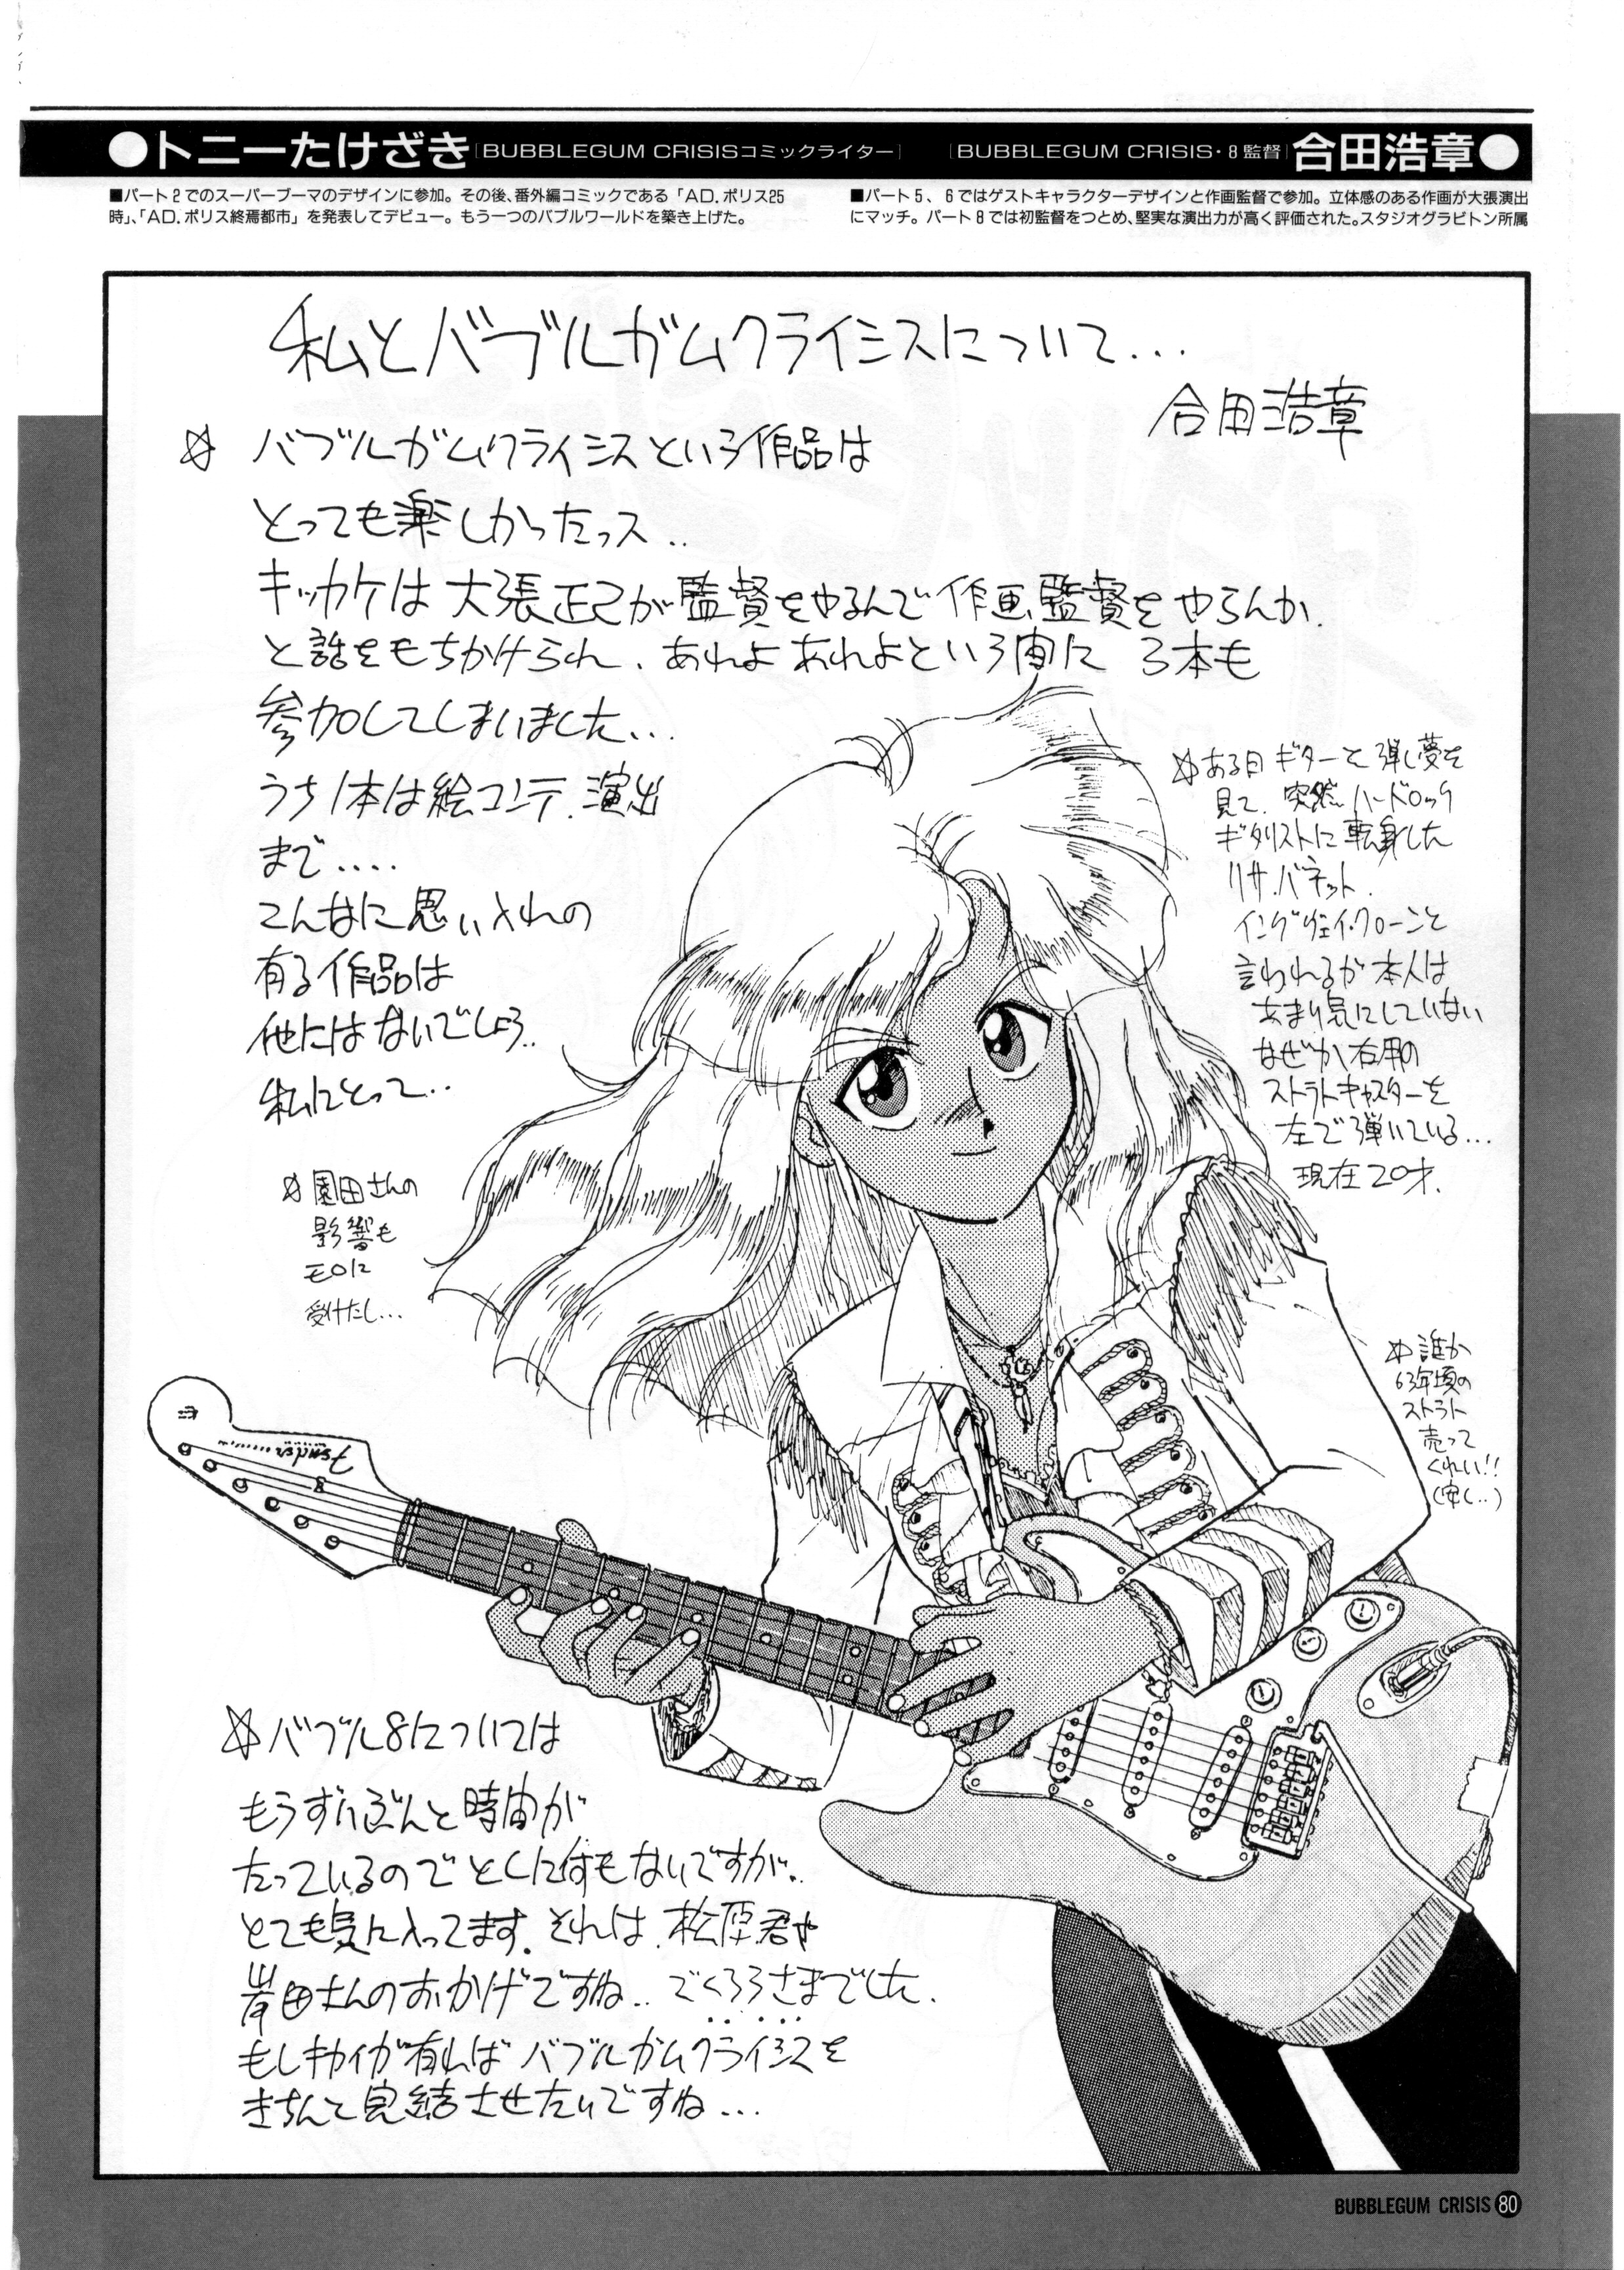 ●トニーたけざき［BUBBLEGUM CRISISコミックライター］
■パート2でのスーパーブーマのデザインに参加。その後、番外編コミックである「AD.ポリス25
時」、「AD.ポリス終焉都市」を発表してデビュー。もう一つのバブルワールドを築き上げた。
［BUBBLEGUM CRISIS・8監督］合田浩章●
■パート5、6ではゲストキャラクターデザインと作画監督で参加。立体感のある作画が大張演出
にマッチ。パート8では初監督をつとめ、堅実な演出力が高く評価された。スタジオグラビトン所属
私とバブルガムクライシスについて...
合田浩章
☆ バブルガムクライシスという作品は
とっても楽しかったっス..
キッカケは大張正己が監督をやるんで作画監督をやらんか、
と話をもちかけられ、あれよあれよという間に 3本も
参加してしまいました...
うち1本は絵コンテ、演出
まで....
こんなに思い入れの
有る作品は
他にはないでしょう..
私にとって..
☆園田さんの
影響も
モロに
受けたし...
☆ある日ギターを弾く夢を
見て、突然ハードロック
ギタリストに転身した
リサ・バネット.
イングヴェイ・クローンと
言われるが本人は
あまり気にしていない
なぜか右用の
ストラトキャスターを
左で弾いている...
現在20才.
☆誰か
63年頃の
ストラト
売って
くれい!!
(安く..)
Fender
☆バブル8については
もうずいぶんと時間が
たっているのでとくに何もないですが..
とても気に入ってます。それは、松原君や
岸田さんのおかげですね.. でくろうさまでした.
もしキカイが有ればバブルガムクライシスを
きちんと完結させたいですね...
BUBBLEGUM CRISIS 80